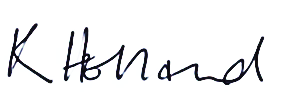 K Holland